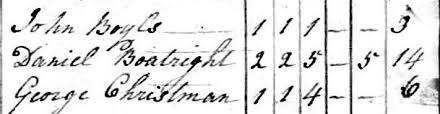 John Boyls 1 1 1 - - 3
Daniel Boatright 2 2 5 - - 5 14
George Christman 1 1 4 - - 6